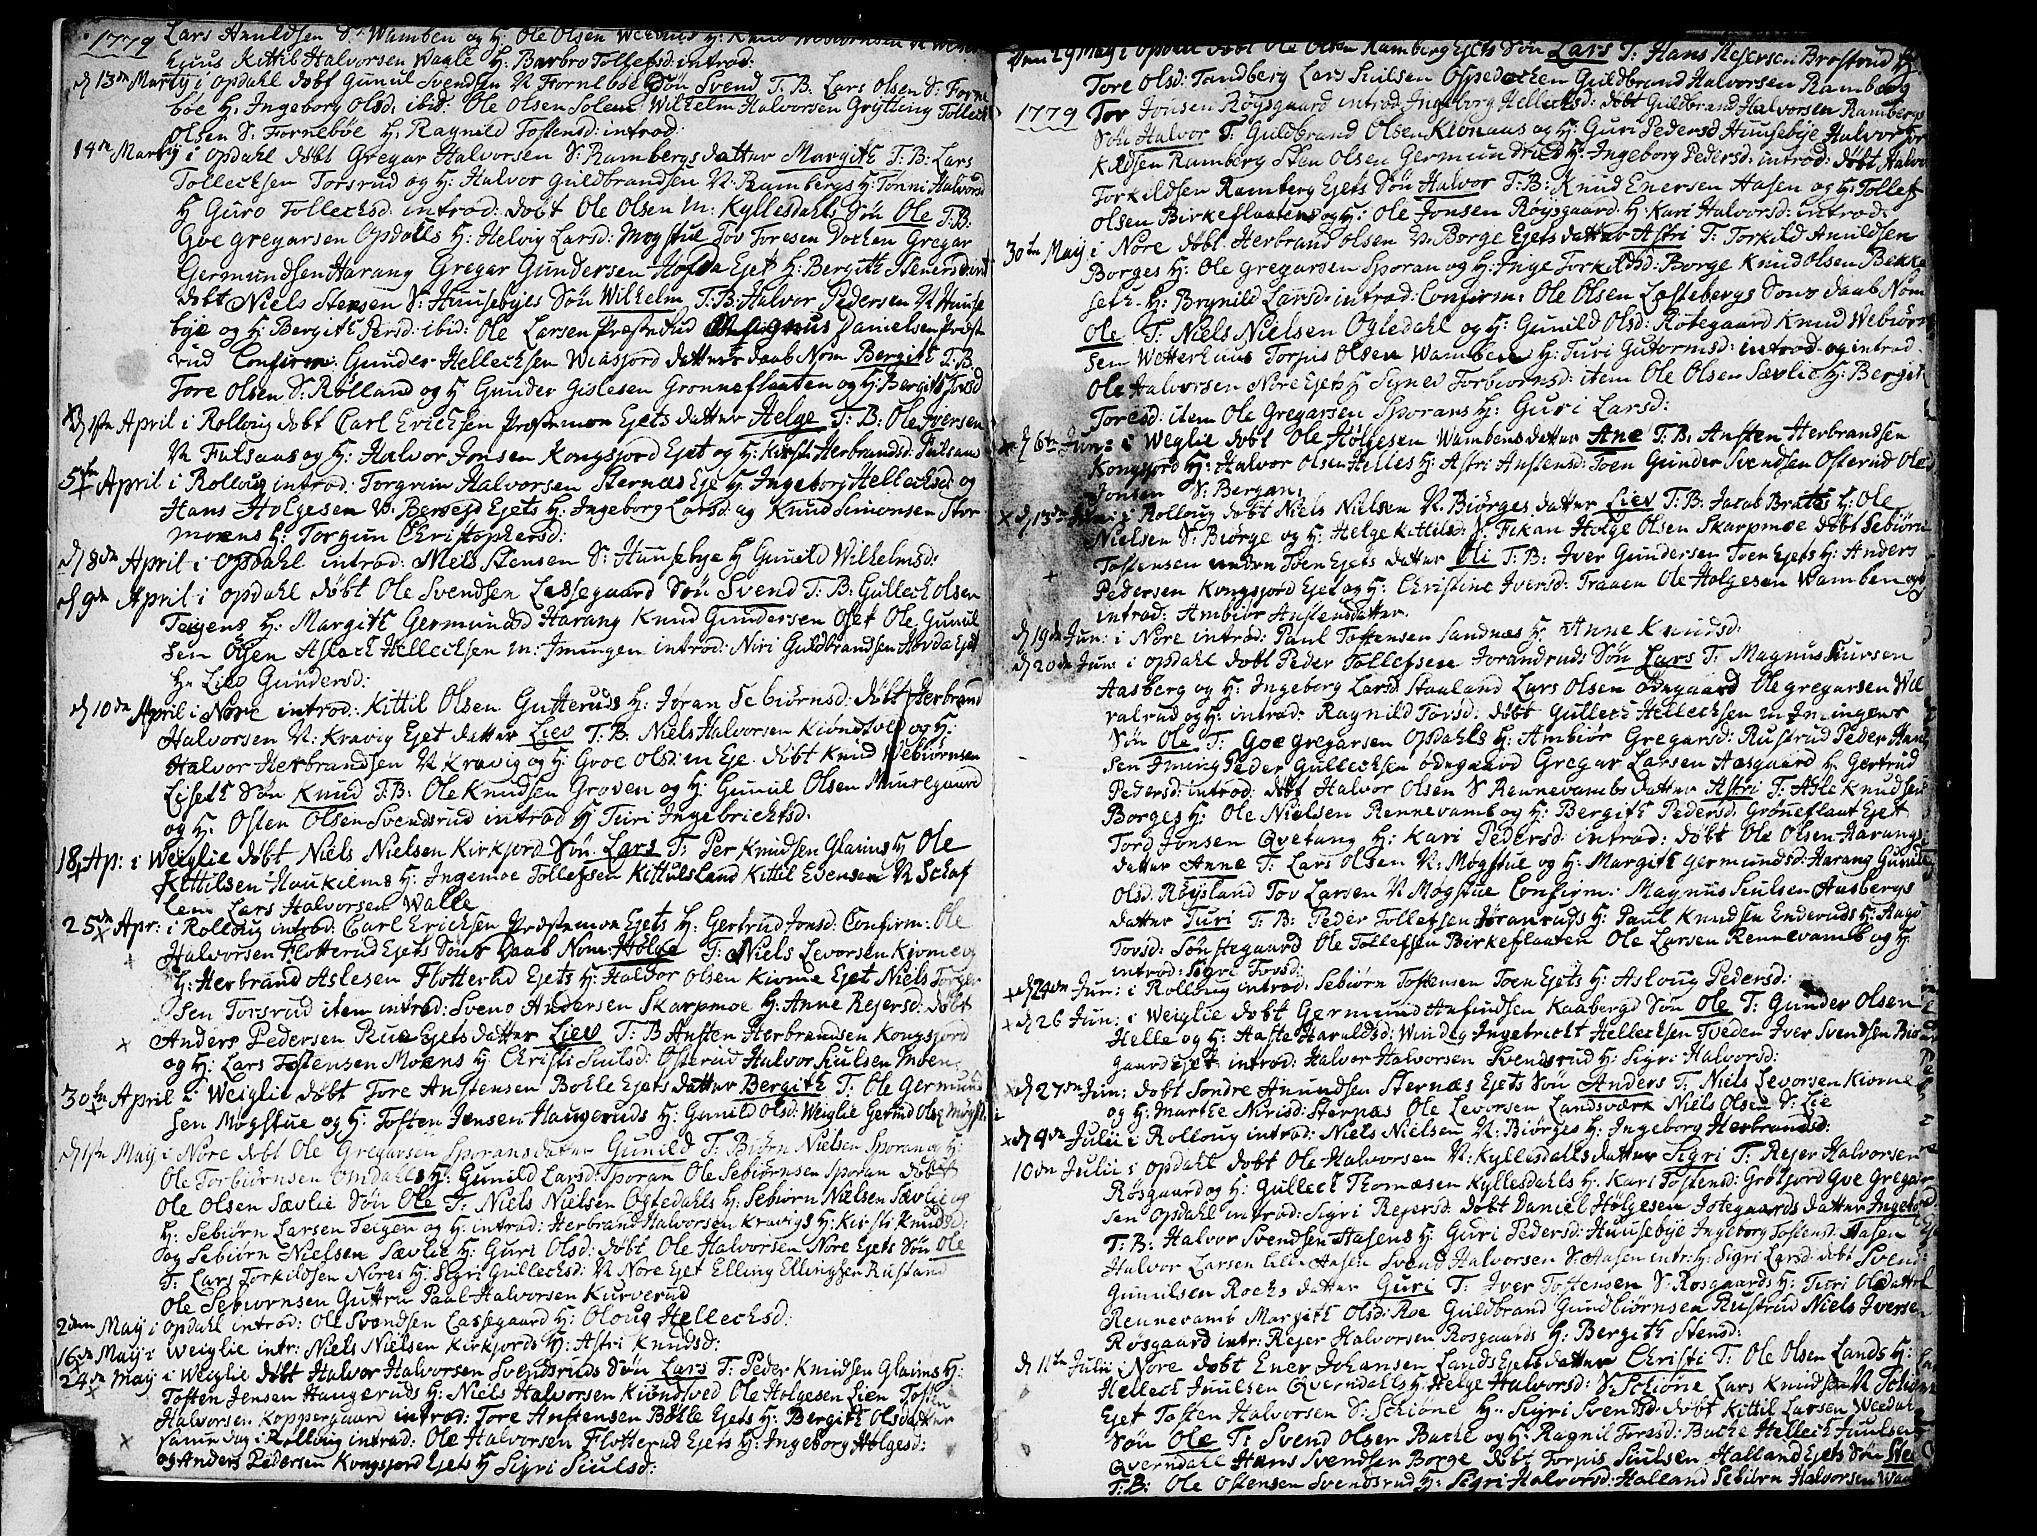 1779 Lars Anuldsen S: Wamben og H: Ole Olsen
Kittil Halvorsen Waale H: Barbro Tollefsd: introd:
d 13de Martij i Opdahl døbt Gunul Svendsen N Fornebøe Søn Svend T.B. Lars Olsen S: Forne
bøe H: Ingeborg Olsd: ibid: Ole Olsen Solem Wilhelm Halvorsen Grÿtting Tolleck
Olsen S: Fornebøe H: Ragnild Tostensd: introd:
14de Martij i Opdahl døbt Gregar Halvorsen S: Rambergs datter Margith T.B: Lars
Tollecksen Torsrud og H: Halvor Guldbrandsen N: Rambergs H: Tonni Halvorsd
H Guro Tollecksd: introd: døbt Ole Olsen M: Kyllesdahls Søn Ole T.B:
Goe Gregarsen Opdalls H: Helvig Larsd: Mogstul Tov Toresen Dochen Gregar
Germundsen Harang Gregar Gundersen Hofda Ejet H: Bergith Stenersdaut
døbt Niels Stensen S: Huusebyes Søn Wilhelm T.B: Halvor Pedersen N Huuse
bye og H: Bergith Persd: ibid: Ole Larsen Præstrud Magnus Danielsen Præst
rud Confirm: Gunder Hellecksen Wiasjord datter daab Nom Bergith T.B.
Tore Olsen S: Rolland og H Gunder Gislesen Grønneflaaten og H: Bergith Torsd
d 1ste April i Rolloug døbt Carl Ericksen Præstemoe Ejets datter Helge T.B: Ole Iversen
N Fulsaas og H: Halvor Jonsen Kongsjord Ejet og H: Kirsti Herbrandsd: Fulsaas
5te April i Rolloug introd: Torgrim Halvorsen Sternæs Eje H: Ingeborg Hellecksd: og
Hans Holgesen N: Bersejd Ejets H: Ingeborg Larsd: og Knud Simonsen Stor
moens H: Torgun Christophersd:
d 8de April i Opdahl introd: Niels Stensen S: Huusebye H Gunild Wilhelmsd:
d 9de April i Opdahl døbt Ole Svendsen Lassegaard Søn Svend T.B: Gulleck Olsen
Teigens H: Margith Germundsd Harang Knud Gundersen Ofet Ole Gunul
sen Ofen Aslack Hellecksen M: Imingen introd: Niri Guldbrandsen Hovda Ejet
H: Liev Gundersd:
d 10de April i Nore introd: Kittil Olsen Gutteruds H: Jøran Sebiørnsd: døbt Herbrand
Halvorsen N: Kravig Ejet datter Liev T.B. Niels Halvorsen Kiøndtved og H:
Halvor Herbrandsen N Kravig og H: Groe Olsd: M Eje døbt Knud Webiørnsen
Liseth Søn Knud T.B: Ole Knudsen Groven og H: Gunul Olsen Muurgaard
og H: Osten Olsen Svendsrud introd H Turi Ingebricktsd:
18de Ap: i Weiglie døbt Niels Nielsen Kirkjord Søn Lars T: Per Knudsen Glaims H Ole
Kittilsen Haukilms H: Ingemoe Tollefsen Kittulsland Kittil Evensen N Schaf
lem Lars Halvorsen Walle
25de Apr: i Rolloug introd: Carl Ericksen Præstemoe Ejets H: Gertrud Jonsd: Confirm: Ole
Halvorsen Flotterud Ejets Søns daab Nom: Holge T: Niels Levorsen Kiome og
H: Herbrand Aslesen Flotterud Ejets H: Halvor Olsen Kiome Ejet Niels Torger
sen Torsrud item introd: Svend Andersen Skarpmoe H: Anne Rejersd: døbt
Anders Pedersen Rue Ejets datter Liev T.B Ansten Herbrandsen Kongsjord
og H: Lars Tostensen Moens H Christi Siulsd: Osterud Halvor Siulsen Moen
30te April i Weiglie døbt Tore Anstensen Bolle Ejets datter Bergith T: Ole Germund
sen Mogstue og H: Tosten Jensen Haugeruds H: Gunild Olsd: Weiglie Gerud Olse Møgst
d 1ste Maij i Nore døbt Ole Gregarsen Sporans datter Gunild T. Biørn Nielsen Sporan og H:
Ole Torbiørnsen Omdahls H: Gunild Larsd: Sporan Ole Sebiørnsen Sporan døbt
Ole Olsen Sævlie Søn Ole T: Niels Nielsen Ogledahls H: Sebiørn Nielsen Sævlie og
H: Sebiørn Larsen Teigen og H: introd: Herbrand Halvorsen Kravigs H: Kirsti Knudsd:
og Sebiørn Nielsen Sævlie H: Guri Olsd: døbt Ole Halvorsen Nore Ejets Søn Ole
T: Lars Torkildsen Nores H: Sigri Gullecksd: N Nore Ejet Elling Ellingsen Rustand
Ole Sebiørnsen Guttru Paul Halvorsen Kurverud
2den Maij i Opdahl introd: Ole Svendsen Lassegaard H: Oloug Hellecksd:
16de Maij i Weiglie intr: Niels Nielsen Kirkjords H: Astri Knudsd:
24de Maij i Weiglie døbt Halvor Halvorsen Svendsruds Søn Lars T: Peder Knudsen Glaims H:
Tosten Jensen Haugeruds H: Niels Halvorsen Kiøndtved Ole Holgesen Lien Tosten
Halvorsen Koppergaard introd: Tore Anstensen Bølle Ejets H: Bergith Olsdatter
samme dag i Rolloug introd: Ole Halvorsen Flotterud Ejets H: Ingeborg Holgesd:
og Anders Pedersen Kongsjord Ejets H Sigri Siulsd:
Den 29 Maij i Opdahl døbt Ole Olsen Ramberg Ejets Søn Lars T: Hans Resersen Brøstrud H:
Tore Olsd: Tandberg Lars Siulsen Ospedochen Guldbrand Halvorsen Ramberg
1779 Tor Jonsen Røysgaard introd: Ingeborg Hellecksd: døbt Guldbrand Halvorsen Rambergs
Søn Halvor T. Guldbrand Olsen Kiønaas og H: Guri Pedersd Huusebye Halvor Tor
kildsen Ramberg Sten Olsen Germundrud H: Ingeborg Pedersd: introd: døbt Halvor
Torkildsen Ramberg Ejets Søn Halvor T.B: Knud Enersen Aasen og H: Tollef
Olsen Birkeflaatens og H: Ole Jonsen Røysgaard H: Kari Halvorsd: introd:
30te Maij i Nore døbt Herbrand Olsen N: Borge Ejets datter Astri T: Torkild Anuldsen
Borges H: Ole Gregarsen Sporan og H: Inge Torkildsd: Borge Knud Olsen Bekke
seth H: Brynild Larsd: introd: Confirm: Ole Olsen Lostebergs Søns daab Nom
Ole T: Niels Nielsen Ogledahl og H: Gunild Olsd: Rotegaard Knud Webiørn
sen Wetterhuus Torpus Olsen Wamben H: Turi Gutormsd: introd og introd:
Ole Halvorsen Nore Ejets H Signed Torbiørnsd: item Ole Olsen Sævlie H: Bergith
Toresd: item Ole Gregarsen Sporans H: Guri Larsd:
d 6te Juni i Weglie døbt Ole Hølgesen Wambens datter Ane T.B. Ansten Herbrandsen
Kongsjord H: Halvor Olsen Helles H: Astri Anstensd: Toen Gunder Svendsen Osterud Ole
Jonsen S: Bergan:
d 13de Juni i Rolloug døbt Niels Nielsen N: Biørges datter Liev T.B. Jacob Bratts H: Ole
Nielsen S: Biørge og H: Helge Kittilsd: N: Fikan Holge Olsen Skarpmoe døbt Sebiørn
Tostensen Toen Ejets datter Oli T.B: Iver Gundersen Toen Ejets H: Anders
Pedersen Kongsjord Ejet og H: Christine Iversd: Traaen Ole Holgesen Wamben og H:
introd: Ambiør Anstensdatter.
d 19de Jun: i Nore introd: Paul Tostensen Sandnæs H: Anne Knudsd:
d 20de Jun: i Opdahl døbt Peder Tollefsen Jorandruds Søn Lars T. Magnus Siursen
Aasberg og H: Ingeborg Larsd: Staaland Lars Olsen Odegaard Ole Gregarsen Wil
ralrud og H: introd: Ragnild Torsd: døbt Gulleck Hellecksen M Imingens
Søn Ole T: Goe Gregarsen Opdahls H: Ambiør Gregarsd: Rustrud Peder Han
sen Iming Peder Gullecksen Odegaard Gregar Larsen Aasgaard H: Gertrud
Pedersd: introd: døbt Halvor Olsen S Rennevambs datter Astri T: Asle Knudsen
Borges H: Ole Nielsen Rennevamb og H: Bergith Pedersd: Grøneflaat Ejet
Tord Jonsen Qvetang H: Kari Pedersd: introd: døbt Ole Olsen Harangs
datter Anne T: Lars Olsen N: Mogstue og H: Margith Germundsd: Harang Gunild
Olsd: Røysland Tov Larsen N Mogstue Confirm: Magnus Siulsen Aasbergs
datter Juri T.B: Peder Tollefsen Jøranruds H: Paul Knudsen Enderuds H: Aago
Torsd: Sønstegaard Ole Tollefsen Birkeflaaten Ole Larsen Rennevamb og H:
introd: Sigri Torsd:
d 24de Jun: i Rolloug introd: Sebiørn Tostensen Toen Ejets H: Asloug Pedersd:
d 26 Jun: i Weiglie døbt Germund Anfindsen Kaabergd Søn Ole T: Gunder Olsen
Helle og H: Aaste Haruldsd: Windeg Ingebrickt Hellecksen Tveden Iver Svendsen Biø
gaard Ejet introd: Halvor Halvorsen Svendsrud H: Sigri Halvorsd:
d 27de Jun: døbt Søndre Anundsen Sternæs Ejets Søn Anders T: Niels Levorsen Kiome
og H: Marthe Nirisd: Sternæs Ole Levorsen Landsværk Niels Olsen S: Lie
d 4de Julii i Rolloug introd: Niels Nielsen N: Biørges H: Ingeborg Herbrandsd:
10de Julii i Opdahl døbt Ole Halvorsen N: Kyllesdalls datter Sigri T: Rejer Halvorsen
Røsgaard og H: Gulleck Thomæsen Kyllesdahls H: Kari Tostensd: Grøtjord Goe Gregar
sen Opdahl introd: Sigri Rejersd: døbt Daniel Hølgesen Jotegaards datter Ingebor
T.B: Halvor Svendsen Aasens H: Guri Pedersd: Huusebije Ingeborg Tostensd: Aasen
Halvor Larsen Lille Aasen Svend Halvorsen S: Aasen intr: H: Sigri Larsd: døbt Svend
Gunulsen Rochs datter Guri T: Iver Tostensen S: Røsgaards H: Turi Olsdattel
Rennevamb Margith Olsd: Roe Guldbrand Gundbiørnsen Rustrud Niels Iversen
Røsgaard intr: Rejer Halvorsen Rosgaards H: Bergith Stensd:
d 11te Julii i Nore døbt Ener Johansen Lands Ejets datter Christi T: Ole Olsen Lands H:
Helleck Juulsen Qverndahls H: Helge Halvorsd: S: Schiøne Lars Knudsen N Schiøne
Ejet Tosten Halvorsen S: Schiøne H: Sigri Svendsd: døbt Kittil Larsen Weedal
Søn Ole T: Svend Olsen Bache og H: Ragnil Toresd: Bache Helleck Juulsen
Qverndahl Hans Svendsen Borge døbt Torpus Siulsen Halland Ejets Søn Sve
T.B: Ole Ostensen Svendsrud H: Sigri Halvorsd: Halland Sebiørn Halvorsen Wam